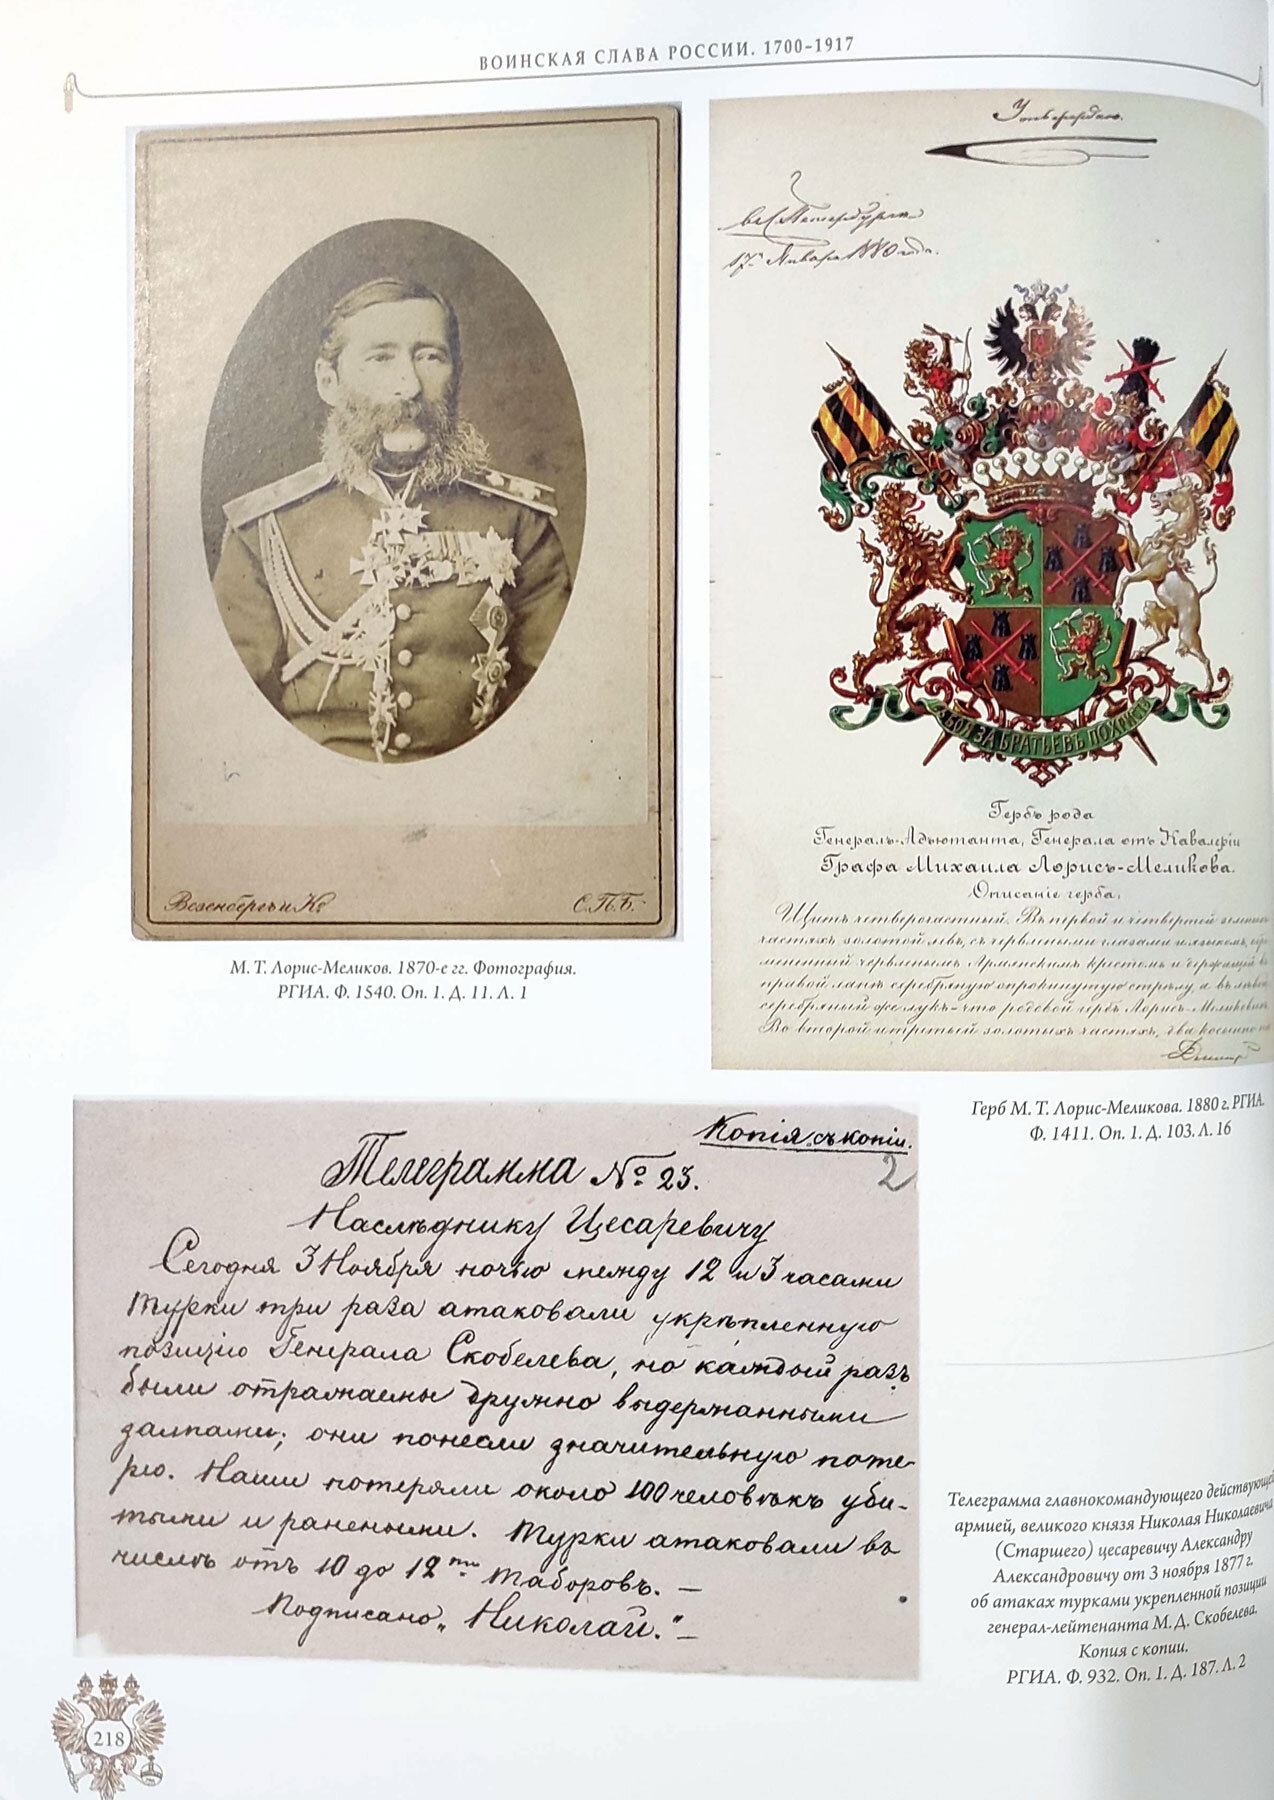 ВОИНСКАЯ СЛАВА РОССИИ. 1700–1917
Везенбергъ и Ко
С.П.Б.
М. Т. Лорис-Меликов. 1870-е гг. Фотография.
РГИА. Ф. 1540. Оп. 1. Д. 11. Л. 1
Утверждаю.
17 Января 1880 года.
БОЙ ЗА БРАТЬЕВЪ ПО ХРИСТѢ
Гербъ рода
Генералъ-Адъютанта, Генерала отъ Кавалеріи
Графа Михаила Лорисъ-Меликова.
Описаніе герба.
Щитъ четверочастный. Въ первой и четвертой
частяхъ золотой левъ, съ червлеными глазами и языкомъ,
червленымъ Армянскимъ крестомъ и держащій въ
правой лапѣ серебряную опрокинутую стрѣлу, а въ
серебряный же лукъ – что родовой гербъ Лорисъ-Меликовыхъ
Во второй и третьей золотыхъ частяхъ, два
Герб М. Т. Лорис-Меликова. 1880 г. РГИА.
Ф. 1411. Оп. 1. Д. 103. Л. 16
Копія съ копіи.
2
Телеграмма № 23.
Наслѣднику Цесаревичу
Сегодня 3 Ноября ночью между 12 и 3 часами
турки три раза атаковали укрѣпленную
позицію Генерала Скобелева, но каждый разъ
были отражаемы дружно выдержанными
залпами; они понесли значительную поте-
рю. Наши потеряли около 100 человѣкъ уби-
тыми и ранеными. Турки атаковали въ
числѣ отъ 10 до 12ти таборовъ. —
Подписано „Николай." —
Телеграмма главнокомандующего действующей
армией, великого князя Николая Николаевича
(Старшего) цесаревичу Александру
Александровичу от 3 ноября 1877 г.
об атаках турками укрепленной позиции
генерал-лейтенанта М. Д. Скобелева.
Копия с копии.
РГИА. Ф. 932. Оп. 1. Д. 187. Л. 2
218